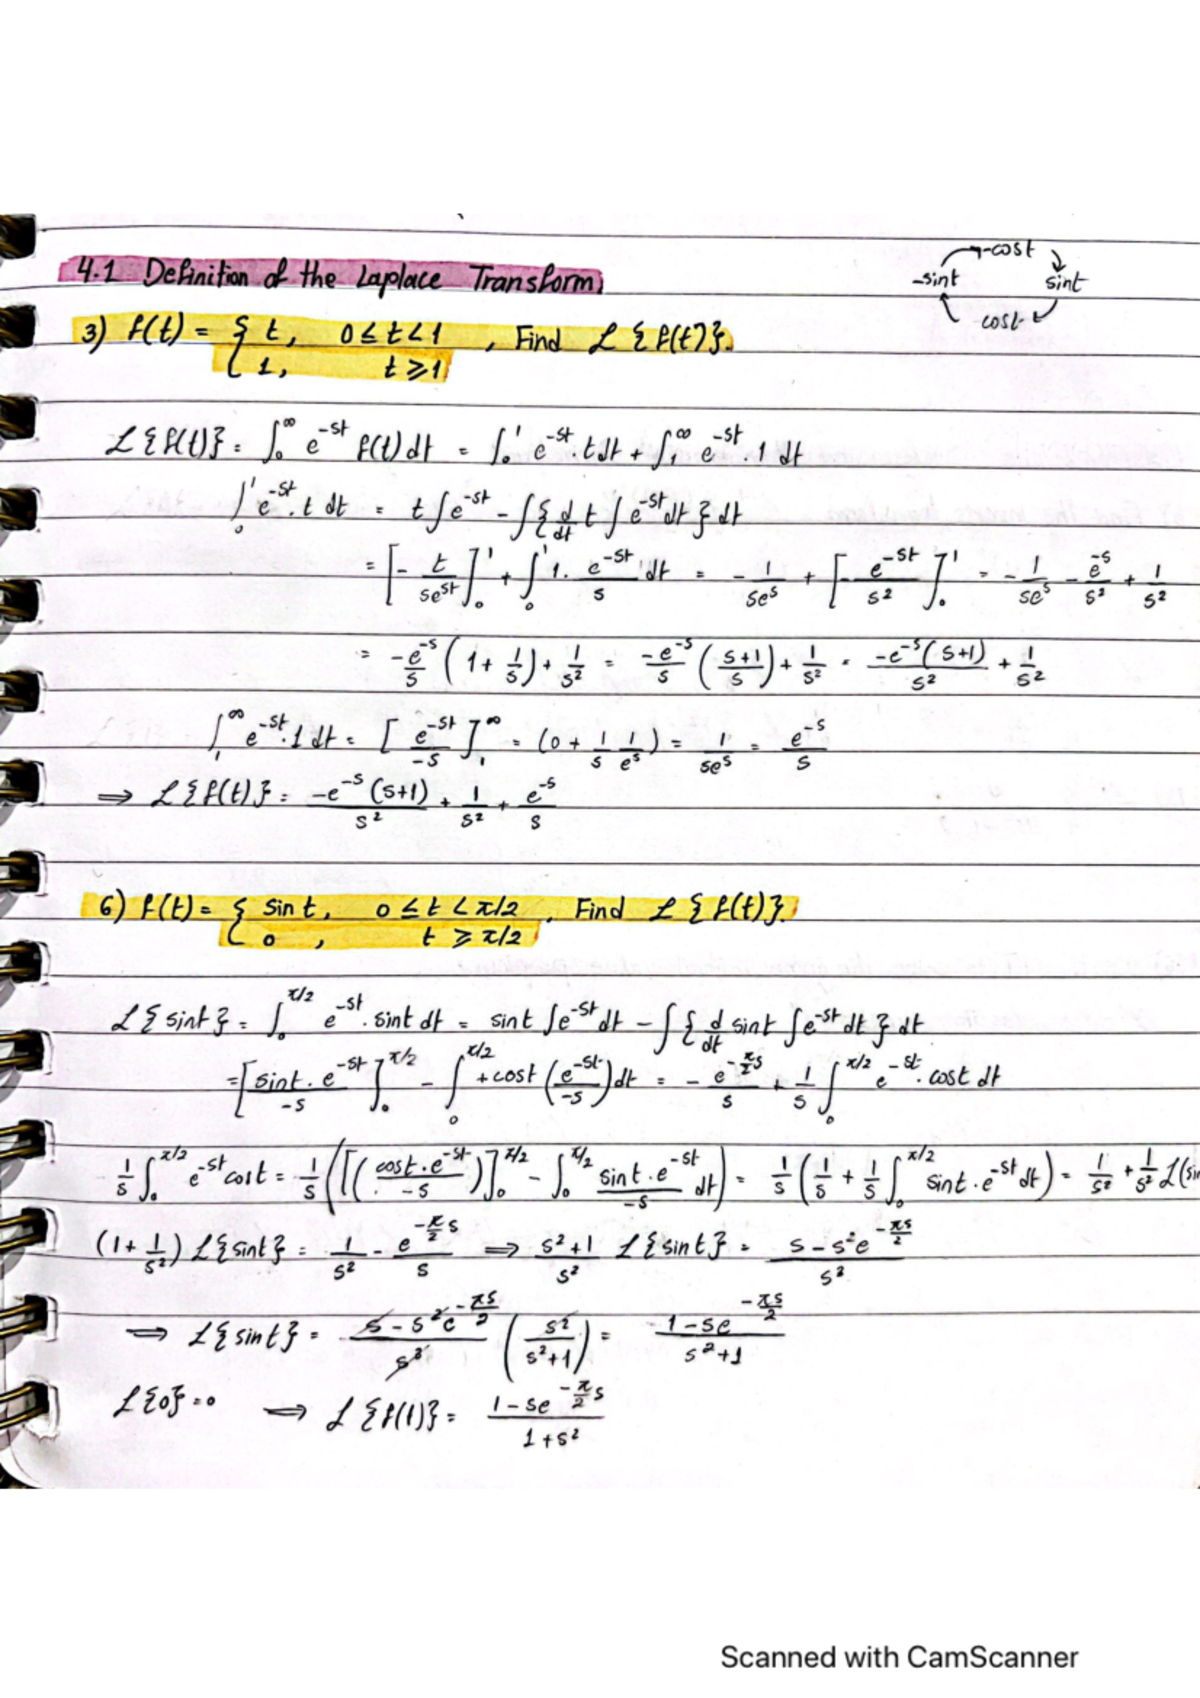 4.1 Definition of the Laplace Transform
-cost
-sint sint
cost
3) f(t) = { t, 0 ≤ t < 1 , Find ℒ{f(t)}.
{ 1, t ≥ 1
ℒ{f(t)} = ∫₀^∞ e^-st f(t) dt = ∫₀^1 e^-st t dt + ∫₁^∞ e^-st . 1 dt
∫₀^1 e^-st . t dt = t ∫ e^-st - ∫ { d/dt t ∫ e^-st dt } dt
= [ - t/se^st ]₀^1 + ∫₀^1 1 . e^-st/s dt = - 1/se^s + [ - e^-st/s² ]₀^1 = - 1/se^s - e^-s/s² + 1/s²
= -e^-s/s ( 1 + 1/s ) + 1/s² = -e^-s/s ( s+1/s ) + 1/s² = -e^-s(s+1)/s² + 1/s²
∫₁^∞ e^-st . 1 dt = [ e^-st/-s ]₁^∞ = ( 0 + 1/s 1/e^s ) = 1/se^s = e^-s/s
⇒ ℒ{f(t)} = -e^-s (s+1)/s² + 1/s² + e^-s/s
6) f(t) = { sin t, 0 ≤ t < π/2 , Find ℒ{f(t)}.
{ 0 , t ≥ π/2
ℒ{sint} = ∫₀^π/2 e^-st . sint dt = sint ∫e^-st dt - ∫ { d/dt sint ∫e^-st dt } dt
= [ sint . e^-st/-s ]₀^π/2 - ∫₀^π/2 +cost ( e^-st/-s ) dt = - e^-π/2 s/s + 1/s ∫₀^π/2 e^-st . cost dt
1/s ∫₀^π/2 e^-st cost = 1/s ( [ ( cost . e^-st/-s ) ]₀^π/2 - ∫₀^π/2 sint . e^-st/-s dt ) = 1/s ( 1/s + 1/s ∫₀^π/2 sint . e^-st dt ) = 1/s² + 1/s² ℒ(sin
(1 + 1/s²) ℒ{sint} = 1/s² - e^-π/2 s/s ⇒ s²+1/s² ℒ{sint} = s - s²e^-πs/2/s³
⇒ ℒ{sint} = s - s²e^-πs/2/s³ ( s²/s²+1 ) = 1 - se^-πs/2/s²+1
ℒ{0} = 0 ⇒ ℒ{f(t)} = 1 - se^-π/2 s/1+s²
Scanned with CamScanner